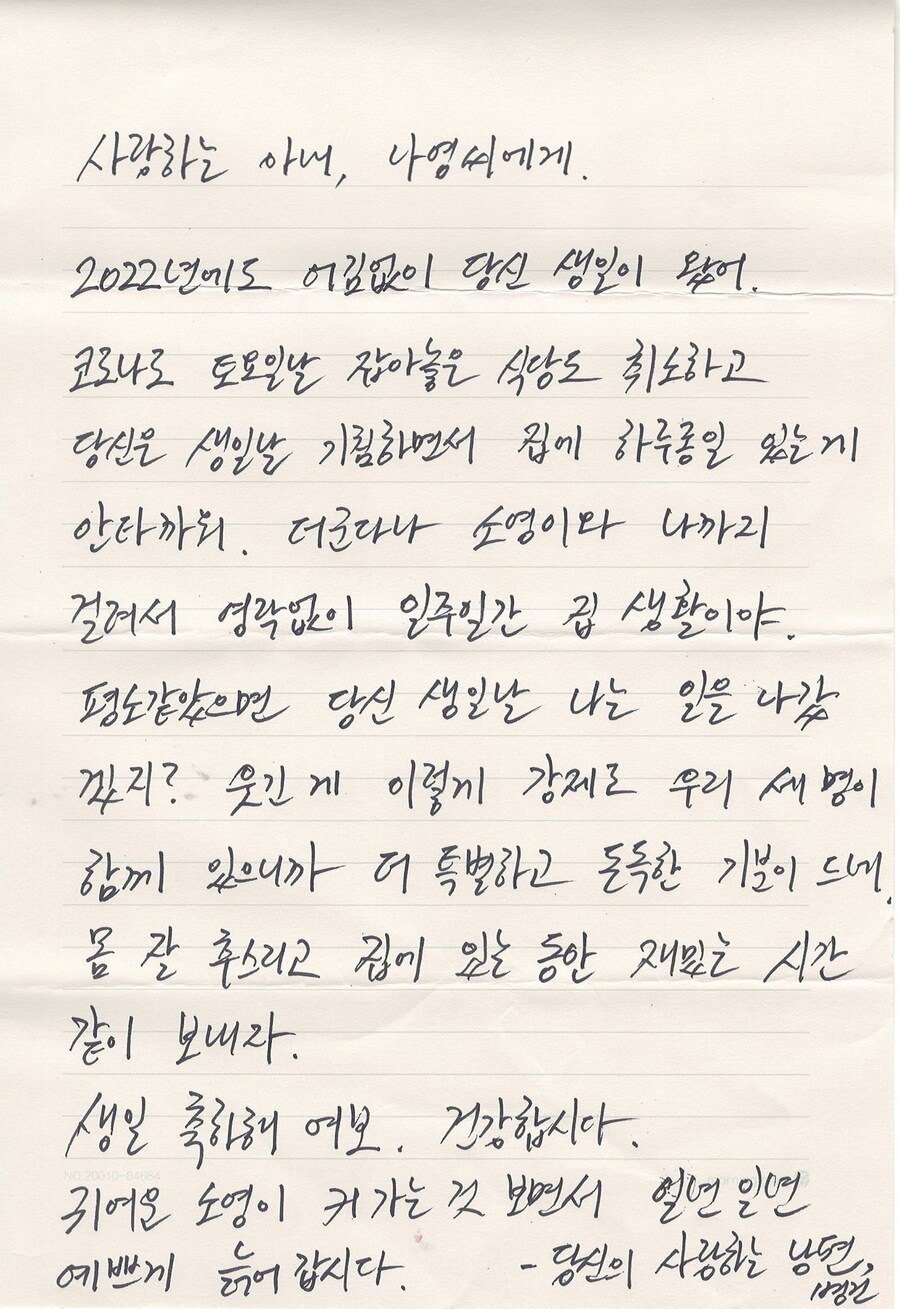 사랑하는 아내, 나영씨에게.
2022년에도 어김없이 당신 생일이 왔어.
코로나로 토요일날 잡아놓은 식당도 취소하고
당신은 생일날 기침하면서 집에 하루종일 있는게
안타까워. 더군다나 소영이와 나까지
걸려서 영락없이 일주일간 집 생활이야.
평소같았으면 당신 생일날 나는 일을 나갔
겠지? 웃긴게 이렇게 강제로 우리 세명이
함께 있으니까 더 특별하고 돈독한 기분이 드네.
몸 잘 추스리고 집에 있는 동안 재밌는 시간
같이 보내자.
생일 축하해 여보. 건강합시다.
NO.20010-84684
귀여운 소영이 커가는 것 보면서 일년 일년
예쁘게 늙어 갑시다. - 당신의 사랑하는 남편,
병건